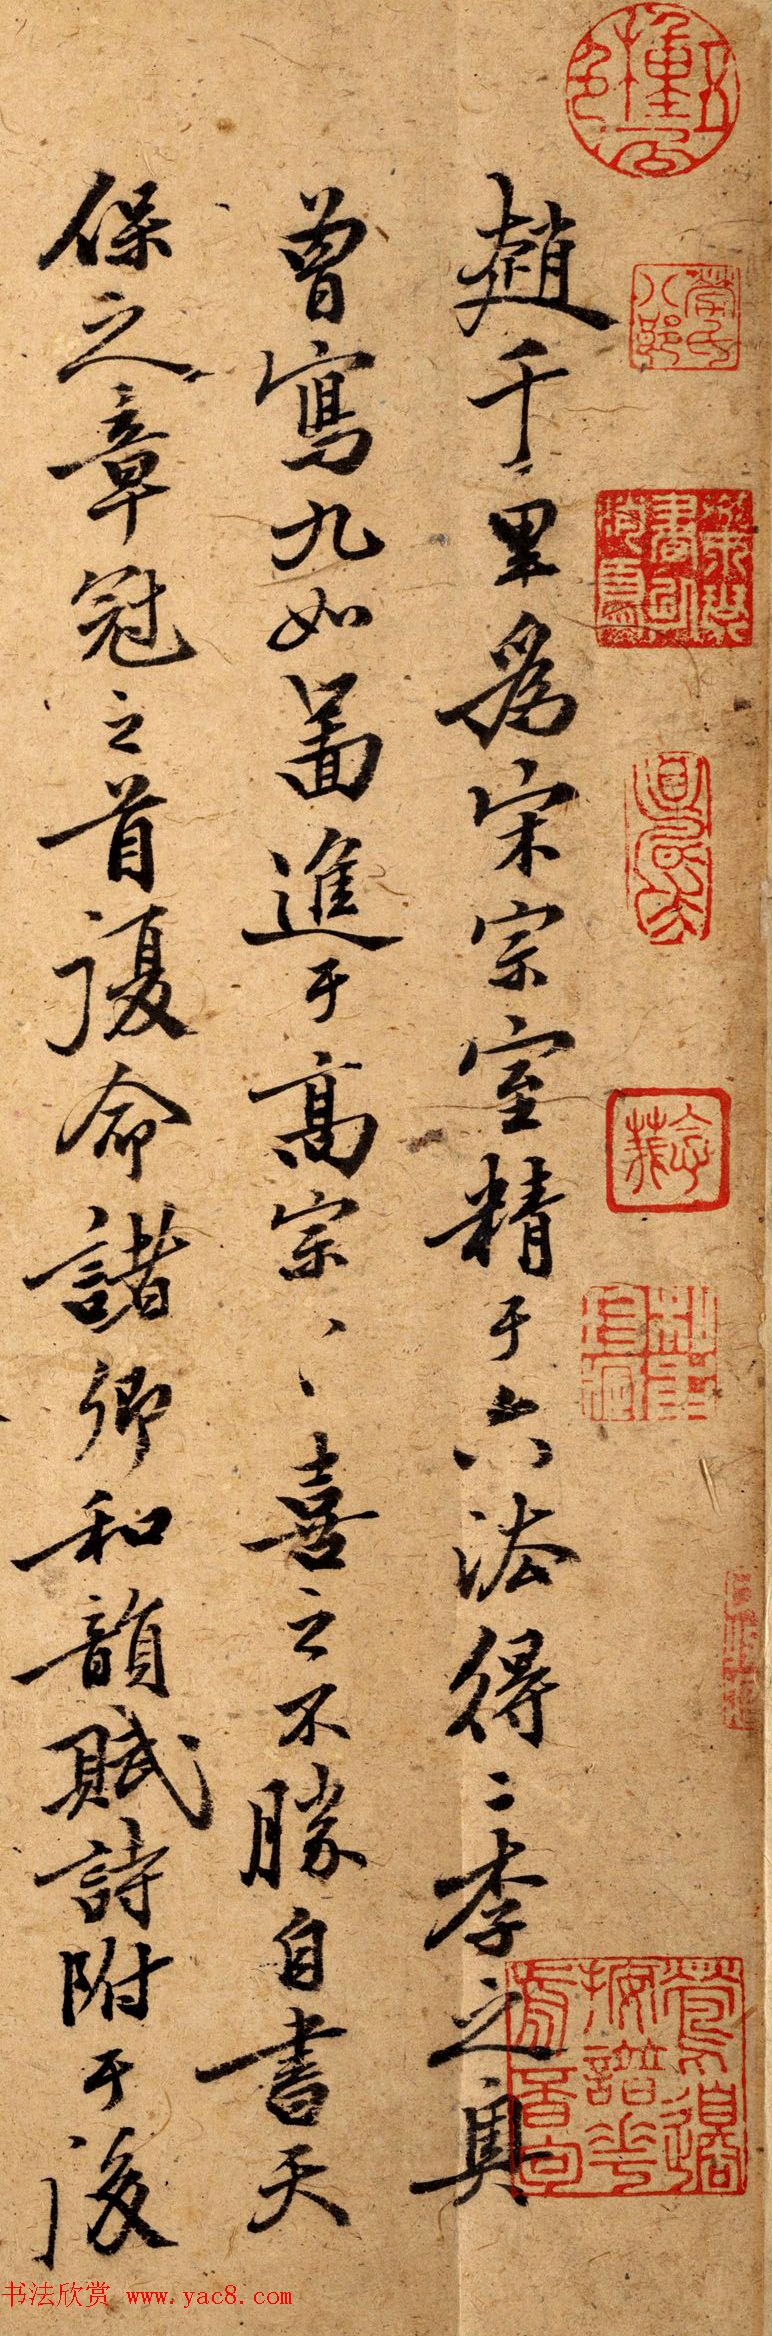 趙千里為宋宗室精于六法得二李之奧
曾寫九如啚進于高宗〻喜之不勝自書天
保之章冠之首復命諸卿和韻賦詩附于後
念莪
书法欣赏 www.yac8.com